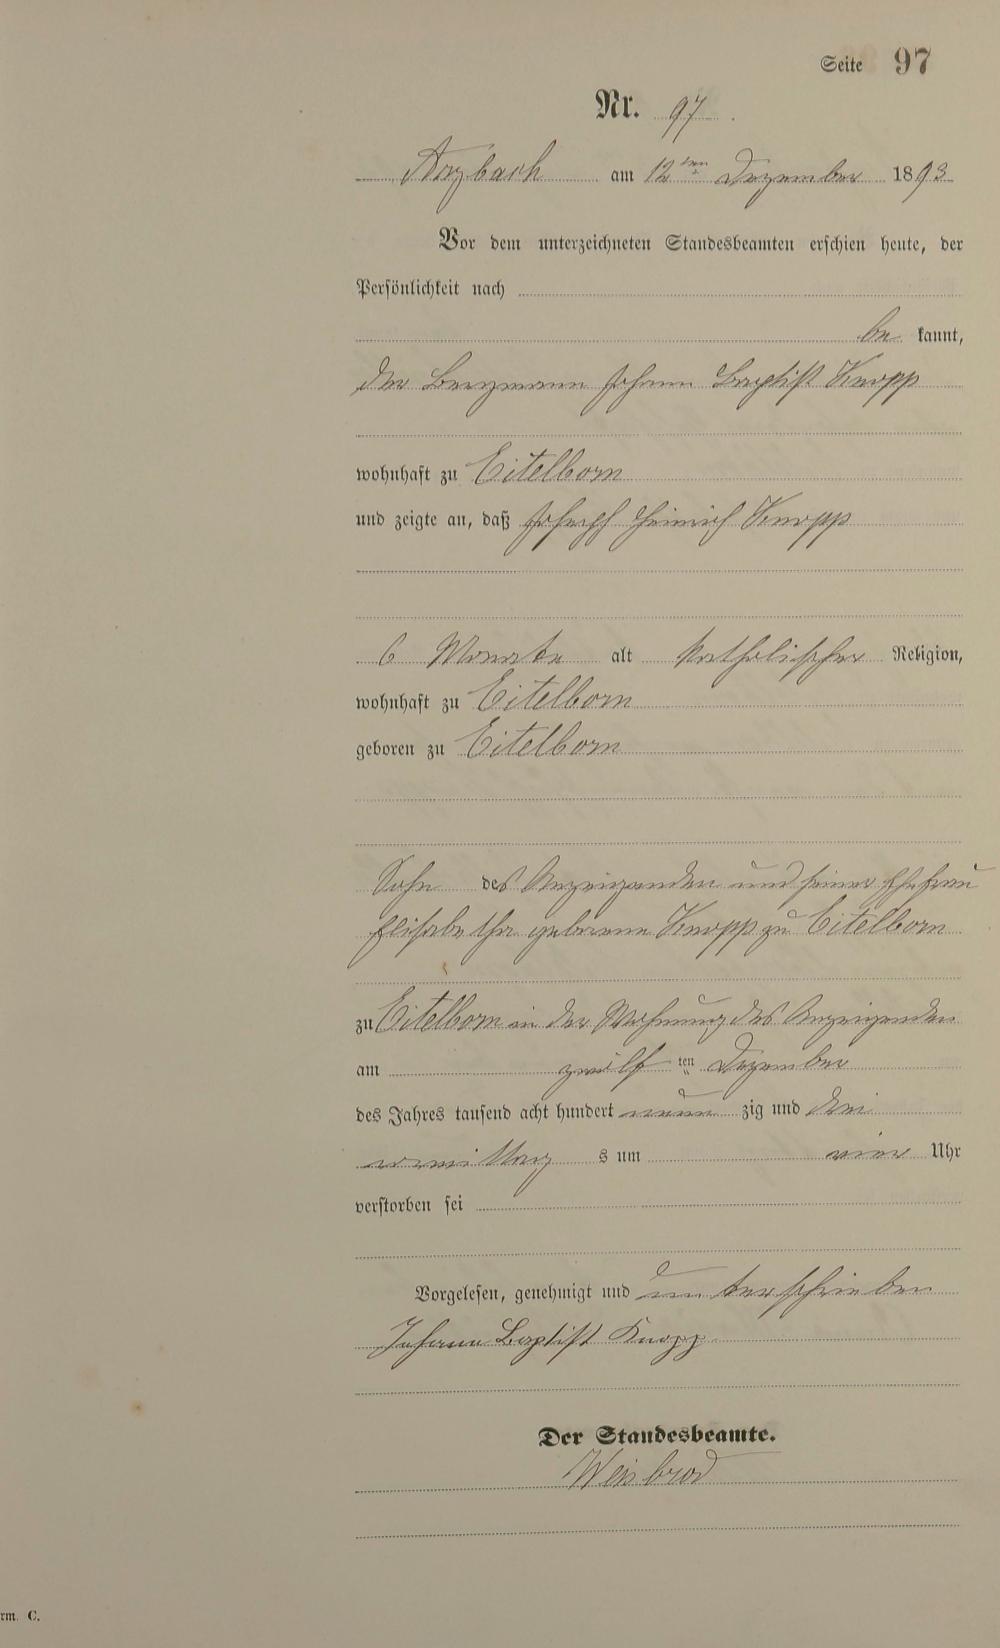 Seite 97
Nr. 97.
Arzbach am 12ten Dezember 1893
Vor dem unterzeichneten Standesbeamten erschien heute, der
Persönlichkeit nach
be kannt,
der Bergmann Johann Baptist Knopp
wohnhaft zu Eitelborn
und zeigte an, daß Joseph Heinrich Knopp
6 Monate alt katholischer Religion,
wohnhaft zu Eitelborn
geboren zu Eitelborn
Sohn des Anzeigenden und seiner Ehefrau
Elisabetha geborene Knopp zu Eitelborn
zu Eitelborn in der Wohnung des Anzeigenden
am zwölf ten Dezember
des Jahres tausend acht hundert neun zig und drei
vormittag s um vier Uhr
verstorben sei
Vorgelesen, genehmigt und unterschrieben
Johann Baptist Knopp
Der Standesbeamte.
Weisbrod
rm. C.